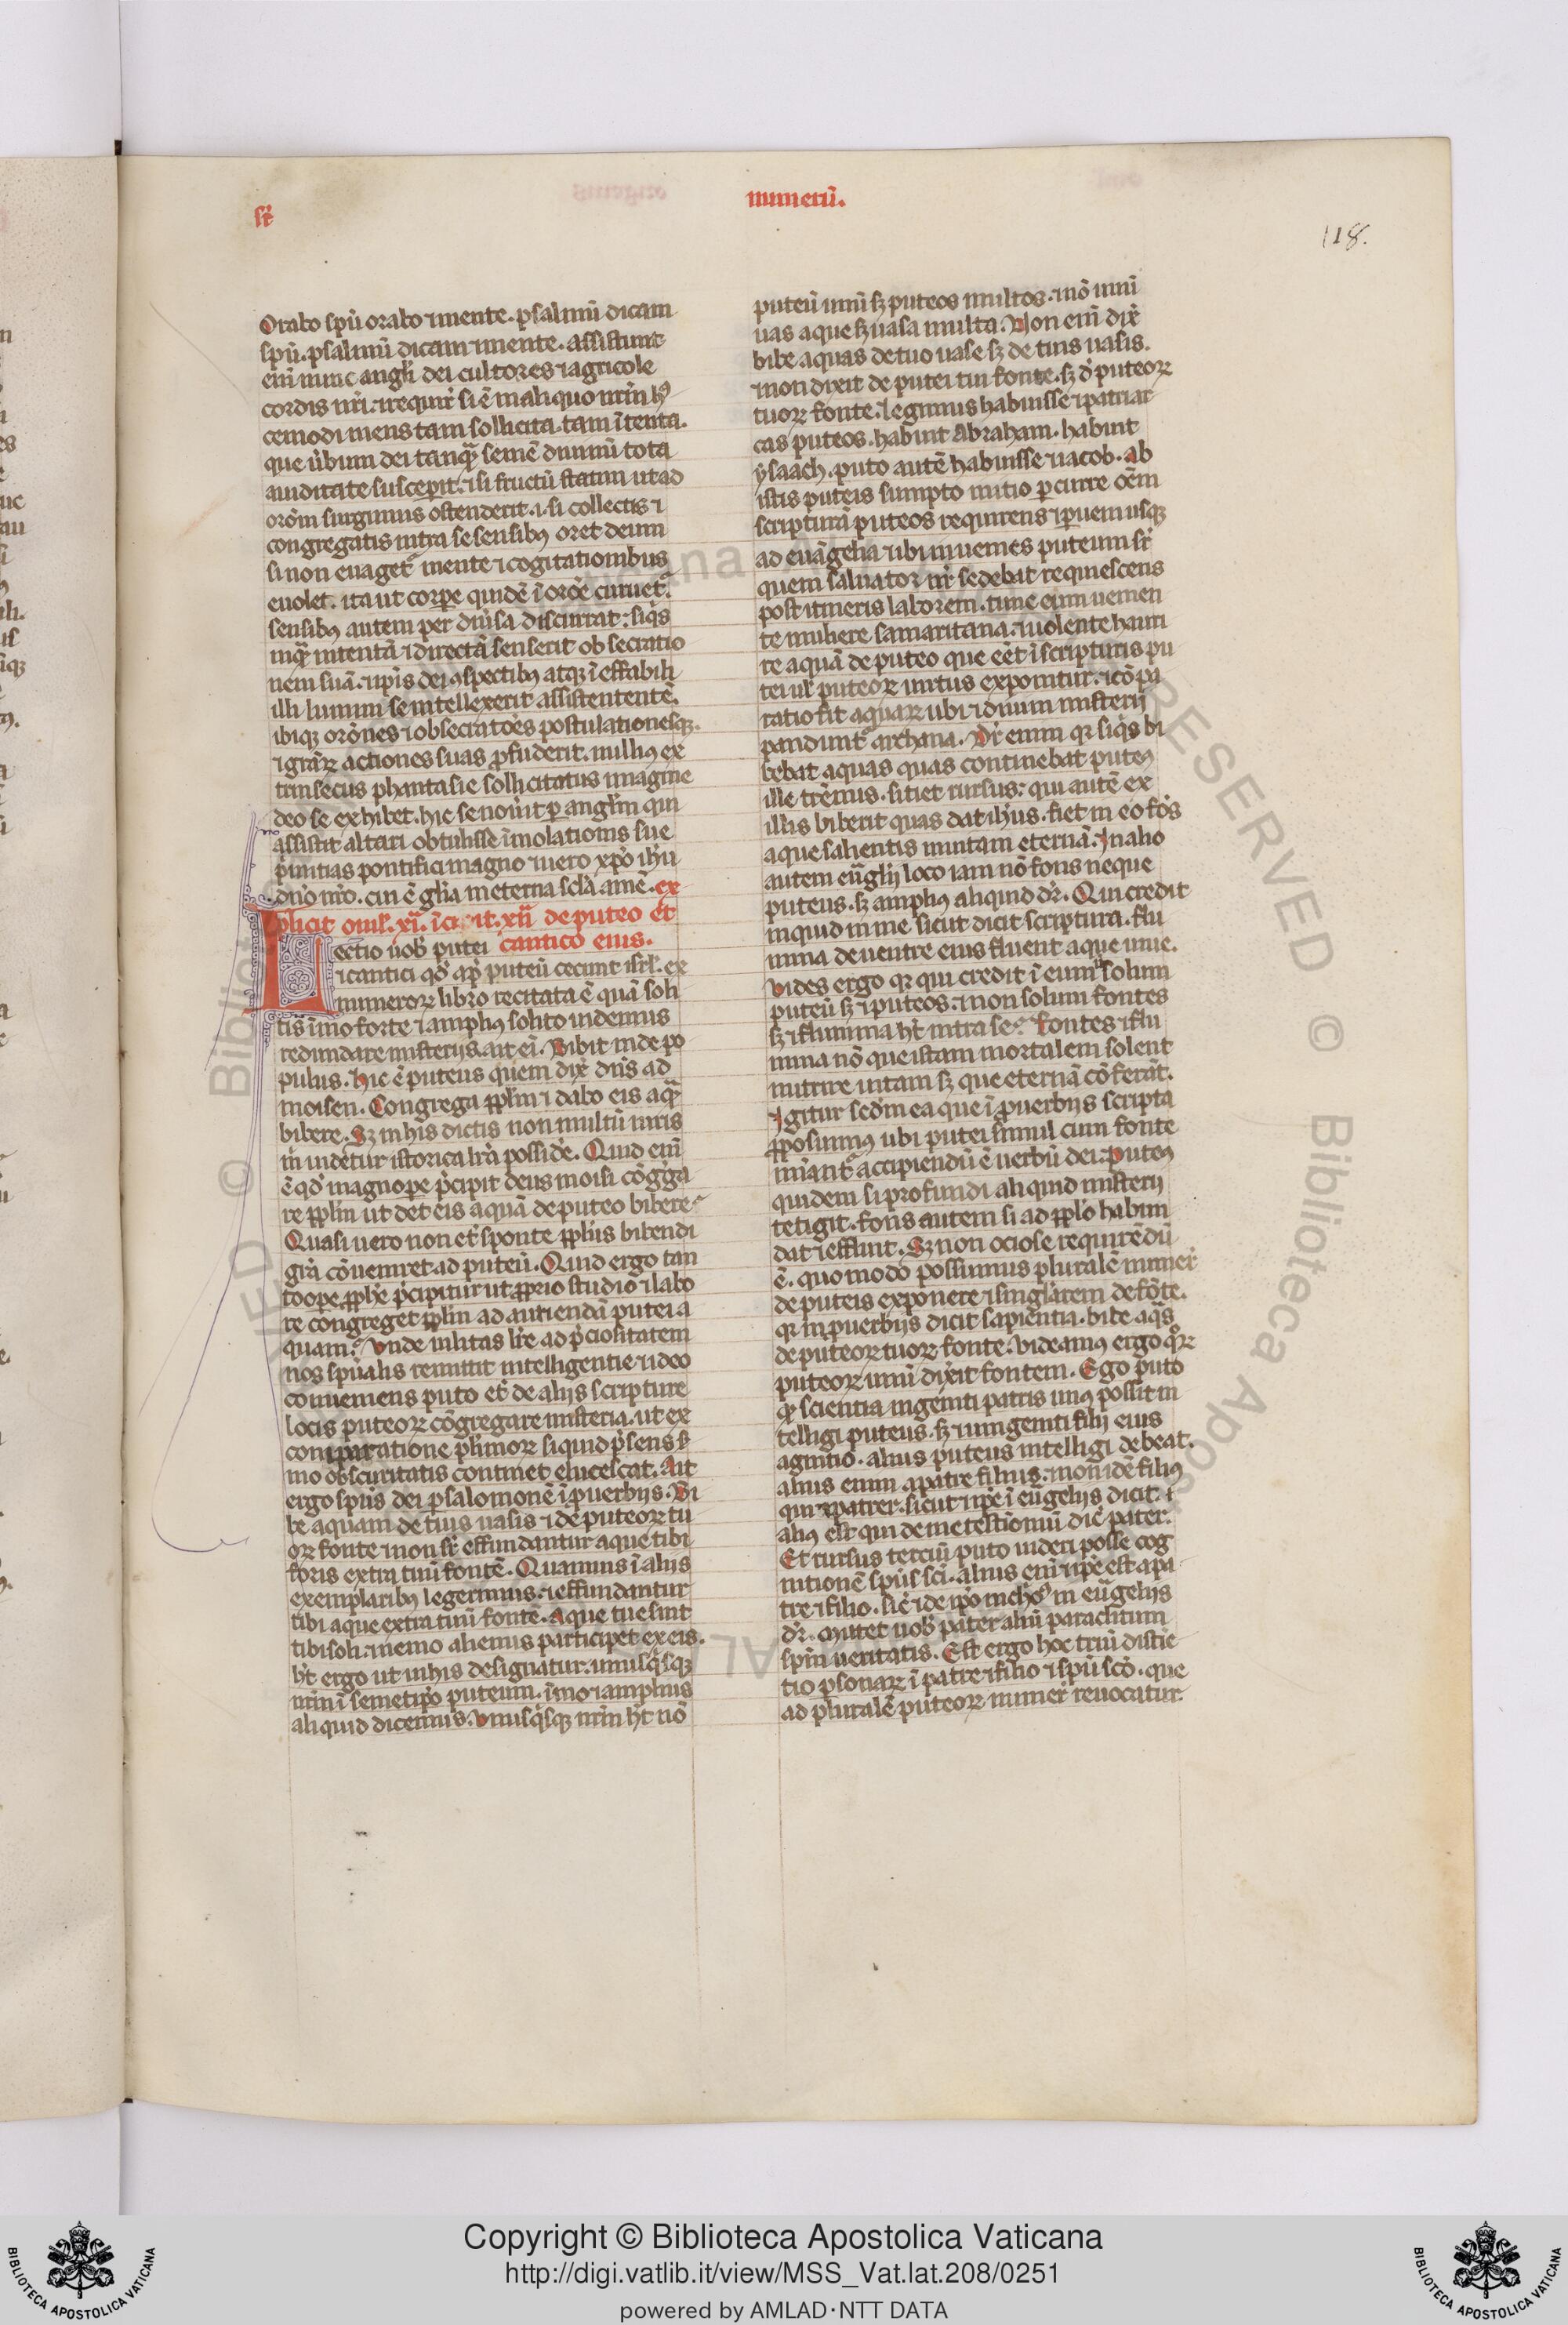 sr̃
numerũ.
118.
Orabo spũ orabo ⁊ mente. psalmũ dicam
spũ. psalmũ dicam ⁊ mente. Assistunt
eni᷑ nunc angli dei cultores ⁊ agricole
cordis nr̃i. ⁊ requir̃ si ẽ in aliquo nr̃m hꝰ
cemodi mens tam sollicita. tam ĩtenta.
que u̇bum dei tanqͣ semẽ diuinũ tota
auiditate susceperit. ⁊ si fructũ statim ut ad
orõm surgimus ostenderit. i. si collectis ⁊
congregatis intra se sensibꝫ oret deum
si non euaget᷑ mente ⁊ cogitationibus
euolet. ita ut corpe quidẽ ĩ orõe curuet᷑.
sensibꝫ autem per diu̇sa discurrat. siq̇s
inqͣ intentã ⁊ directã senserit obsecratio
nem suã. ⁊ ip̃is dei ꝯspectibꝫ atqꝫ ĩeffabili
illi lumini se intellexerit assistententẽ.
ibiqꝫ orõnes ⁊ obsecratões postulationesqꝫ.
⁊ gr̃aꝝ actiones suas ꝓfuderit. nulliꝰ ex
trinsecus phantasie sollicitatus imagine
deo se exhibet. hic se nou̇it ꝑ anglm qui
assistit altari obtulisse ĩmolationis sue
p̃mitias pontifici magno ⁊ uero xp̃o ih̃u
dño nr̃o. cui ẽ gl̃ia in eterna sc̃la amẽ. ex
plicit omil. xi. ĩcipit. xii de puteo et
Lectio uob̃ putei cantico eius.
⁊ cantici qd̃ ap̃ puteũ cecinit isrl̃. ex
numeroꝝ libro recitata ẽ quã soli
tis ĩmo forte ⁊ amplius solito uidemus
redundare misterijs. ait ei᷑. Bibit inde po
pulus. Hic ẽ puteus quem dix̃ dñs ad
moisen. Congrega ppl̃m ⁊ dabo eis aqͣ
bibere. Sꝫ in his dictis non multũ iuris
m̃ uidetur istorica lr̃a possid̃e. Quid eni᷑
ẽ qd̃ magnope p̃cipit deus moisi cõg̃ga
re ppl̃m ut det eis aquã de puteo bibere?
Quasi uero non et̃ sponte ppl̃us bibendi
gr̃a cõueniret ad puteũ. Quid ergo tan
toope pphe p̃cipitur ut ꝓprio studio ⁊ labo
re congreget ppl̃m ad auriendã putei a
quam? Unde uilitas lr̃e ad p̃ciositatem
nos spũalis remittit intelligentie ⁊ ideo
conueniens puto et̃ de alijs scripture
locis puteoꝝ cõgregare misteria. ut ex
comparatione pl̃imoꝝ siquid p̃sens s̃
mo obscuritatis continet elucescat. Ait
ergo spũs dei ꝑ salomonẽ ĩ ꝓuerbijs. Bi
be aquam de tuis uasis ⁊ de puteoꝝ tu
oꝝ fonte ⁊ non sr̃ effundantur aque tibi
foris extra tuũ fontẽ. Quamuis ĩ alijs
exemplaribꝫ legerimus. ⁊ effundantur
tibi aque extra tuũ fontẽ. aque tue sint
tibi soli. ⁊ nemo alienus participet ex eis.
h̃t ergo ut in his designatur. unusq̇sqꝫ
nr̃m ĩ semetip̃o puteum. ĩmo ⁊ amplius
aliquid dicemus. Unusq̇sqꝫ nr̃m h̃t nõ
puteũ unũ sꝫ puteos multos. ⁊ nõ unũ
uas aque sꝫ uasa multa. Non eni᷑ dix̃
bibe aquas de tuo uase sꝫ de tuis uasis.
⁊ non dixit de putei tui fonte. sꝫ d̃ puteoꝝ
tuoꝝ fonte. Legimus habuisse ⁊ patriar
cas puteos. habuit Abraham. habuit
ysaach. puto autẽ habuisse ⁊ iacob. Ab
istis puteis sumpto initio ꝑcurre oẽm
scripturã puteos requirens ⁊ ꝑueni usqꝫ
ad euãgelia ⁊ ibi inuenies puteum sr̃
quem saluator nr̃ sedebat requiescens
post itineris laborem. tunc cum uenien
te muliere samaritana. ⁊ uolente hauri
re aquã de puteo que eẽt ĩ scripturis pu
tei ul̃ puteoꝝ uirtus exponitur. ⁊ cõpa
ratio fit aquaꝝ ubi ⁊ diuini misterij
pandunt᷑ archana. Dr̃ enim qꝛ siq̇s bi
bebat aquas quas continebat puteꝰ
ille trẽnus. sitiet rursus: qui autẽ ex
illis biberit quas dat ih̃us. fiet in eo fõs
aque salientis in uitam eternã. In alio
autem eũglij loco iam nõ fons neque
puteus. sꝫ amplius aliquid dr̃. Qui credit
inquid in me sicut dicit scriptura. flu
mina de uentre eius fluent aque uiue.
Uides ergo qꝛ qui credit ĩ eum ñ solum
puteũ sꝫ ⁊ puteos. ⁊ non solum fontes
sꝫ ⁊ flumina h̃t intra se? Fontes ⁊ flu
mina nõ que istam mortalem solent
nutrire uitam sꝫ que eternã cõferãt.
Igitur scd̃m ea que ĩ ꝓuerbijs scripta
ꝓposuimꝰ ubi putei simul cum fonte
mĩant᷑ accipiendũ ẽ uerbũ dei. puteꝰ
quidem si profundi aliquid misterij
tetigit. fons autem si ad ppl̃o habun
dat ⁊ effluit. Sꝫ non ociose requirẽdũ
ẽ. quo modo possumus pluralẽ numer̃
de puteis exponere ⁊ singl̃arem de fõte.
qꝛ in ꝓuerbijs dicit sapientia. bibe aqͣs
de puteoꝝ tuoꝝ fonte. Uideamꝰ ergo qͦꝝ
puteoꝝ unũ dixit fontem. Ego puto
qͣ scientia ingeniti patris unꝰ possit in
telligi puteus. sꝫ ⁊ unigeniti filij eius
agnitio. alius puteus intelligi debeat.
alius enim a patre filius. ⁊ non idẽ filiꝰ
qui ⁊ pater. sicut ⁊ ip̃e ĩ eũgelijs dicit. ⁊
aliꝰ est qui de me testimoniũ dic̃ pater.
Et rursus terciũ puto uideri posse cog
nitionẽ spũs sc̃i. alius eni᷑ ⁊ ip̃e est a pa
tre ⁊ filio. sic̃ ⁊ de ip̃o nichꝰ in eũgelijs
dr̃. Mittet uob̃ pater aliũ paraclitum
spm̃ ueritatis. Est ergo hoc triũ distic
tio ꝑsonaꝝ ĩ patre ⁊ filio ⁊ spũ scõ. que
ad pluralẽ puteoꝝ numer̃ reuocatur
Copyright © Biblioteca Apostolica Vaticana
http://digi.vatlib.it/view/MSS_Vat.lat.208/0251
powered by AMLAD·NTT DATA
BIBLIOTECA APOSTOLICA VATICANA
BIBLIOTECA APOSTOLICA VATICANA